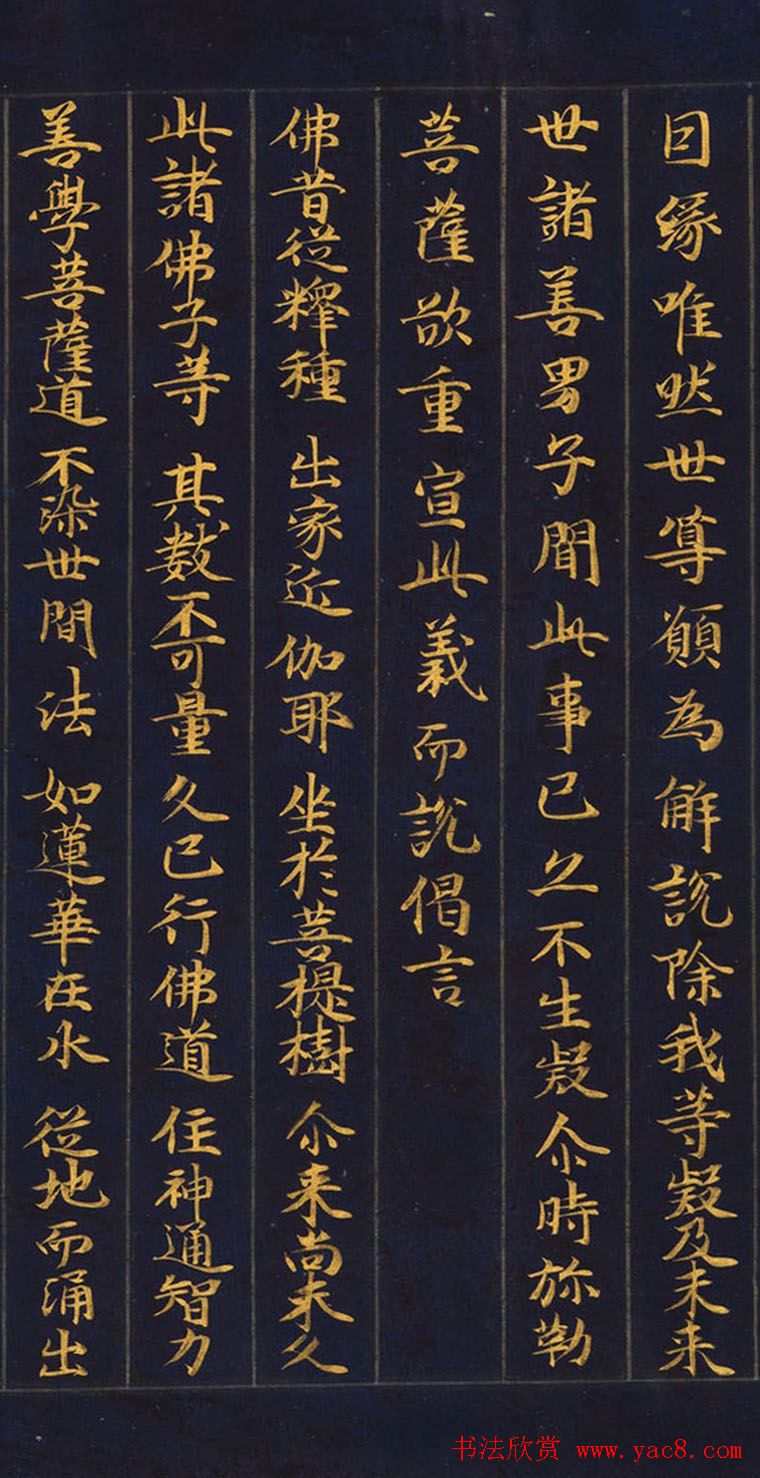 目緣唯然世尊願為解說除我等疑及未來
世諸善男子聞此事已久不生疑尒時弥勒
菩薩欲重宣此義而說偈言
佛昔從釋種 出家近伽耶 坐於菩提樹 尒來尚未久
此諸佛子等 其數不可量 久已行佛道 住神通智力
善學菩薩道 不染世間法 如蓮華在水 從地而涌出
书法欣赏 www.yac8.com